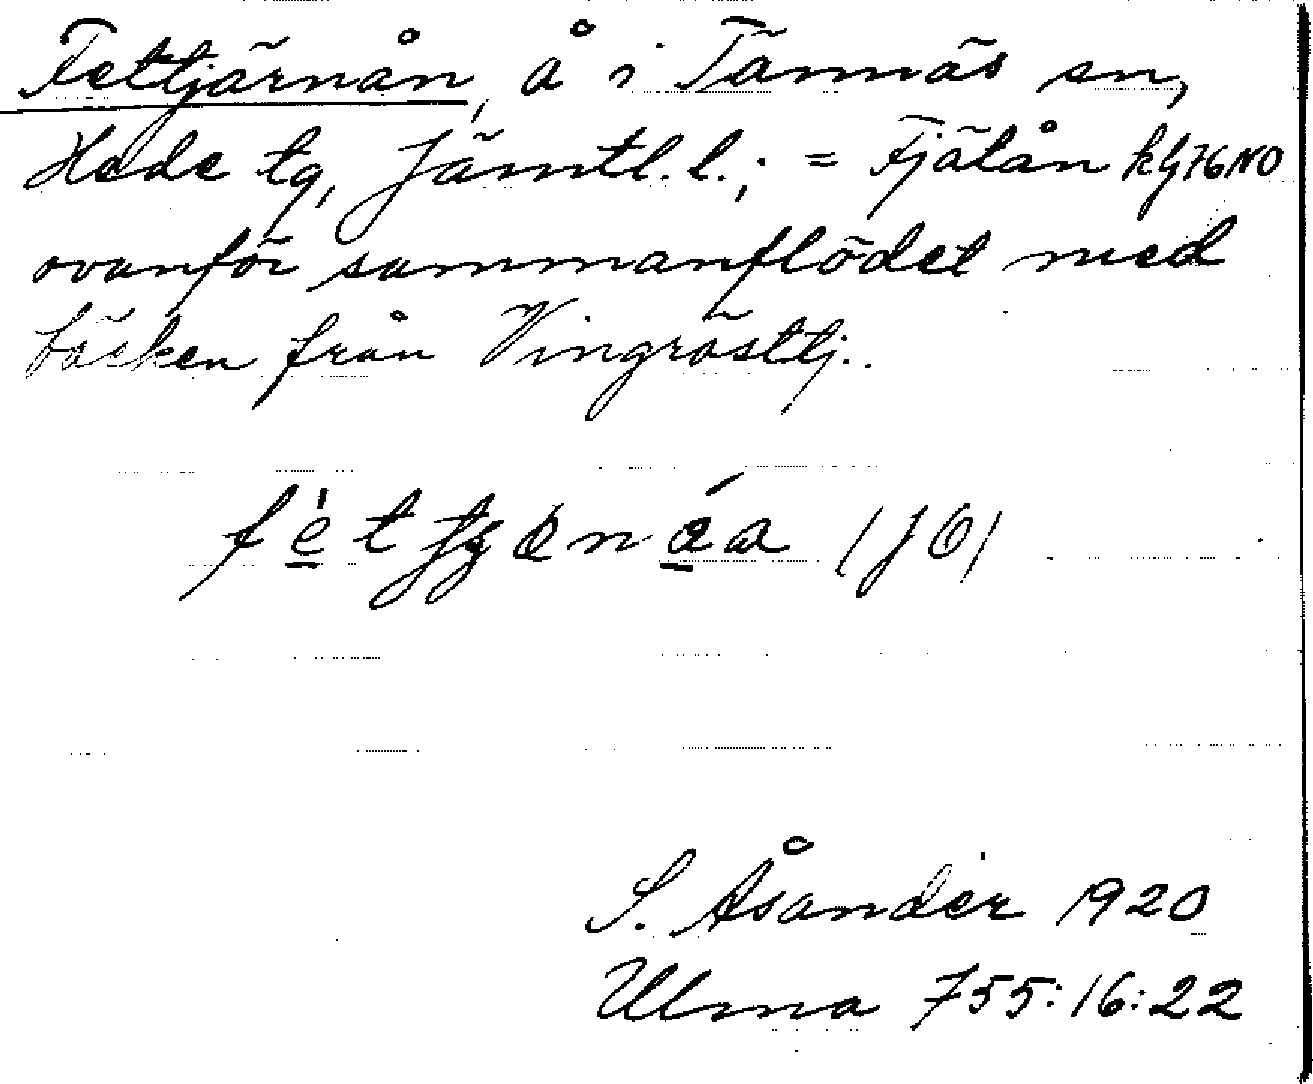 Fettjärnån, å i Tännäs sn,
Hede tg, Jämtl. l.; = Fjätån kbl 76 NO
ovanför sammanflödet med
bäcken från Vingrösttj..
(JÖ)
S. Åsander 1920
Ulma 755:16:22